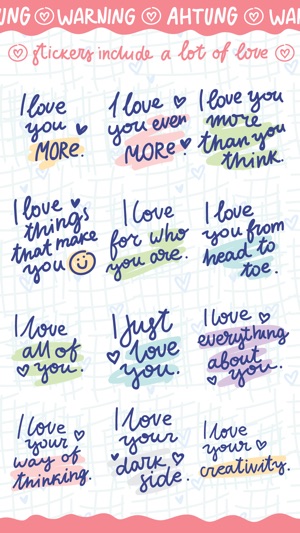 UNG ♡ WARNING ♡ AHTUNG ♡ WA
stickers include a lot of love
I love
you
MORE.
I love
you even
MORE
I love you
more
than you
think.
I love
things
that make
you
I love
for who
you are.
I love
you from
head to
toe.
I love
all of
you.
I Just
love
you.
I love
everything
about
you.
I love
your
way of
thinking.
I love
your
dark
side.
I love
your
creativity.